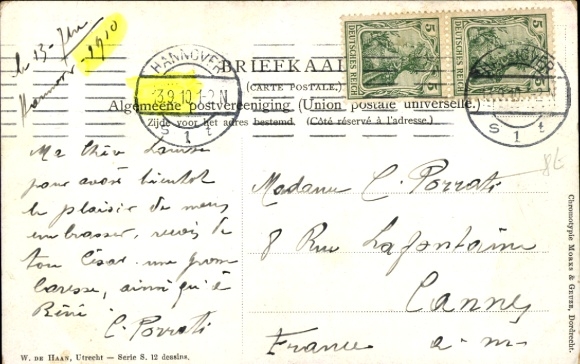 le 13-7bre
Hannover - 1910
HANNOVER
13.9.10.1-2N
S 1 t
5 DEUTSCHES REICH 5
5 DEUTSCHES REICH 5
HANNOVER
S 1 t
BRIEFKAA
(CARTE POSTALE.)
Algemeene postvereeniging (Union postale universelle.)
Zijde voor het adres bestemd. (Côté réservé à l'adresse.)
Ma Chère Louise
pour avoir bientot
le plaisir de
embrasser, reçois de
ton César une grosse
Caresse, ainsi qu'à
Réné
C. Porrati
Madame C. Porrati
8 Rue Lafontaine
Cannes
France a-m-
W. DE HAAN, Utrecht — Serie S. 12 dessins.
Chromotypie MORKS & GEUZE, Dordrecht.